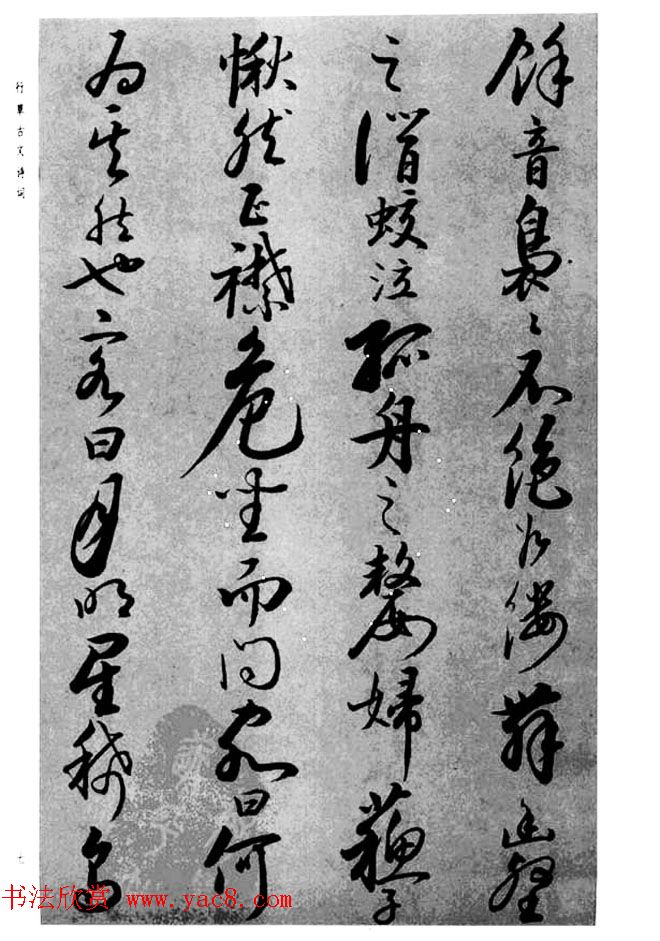 餘音裊〻不絕如縷舞幽壑
之潛蛟泣孤舟之嫠婦蘇子
愀然正襟危坐而問客曰何
為其然也客曰月明星稀烏
行草古文诗词
七
书法欣赏 www.yac8.com